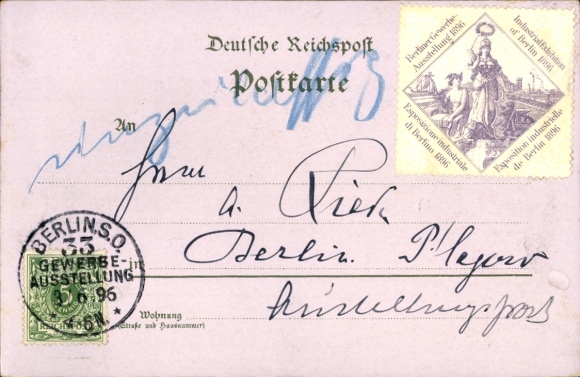 Deutsche Reichspost
Postkarte
Berliner Gewerbe
Ausstellung 1896
Industrial Exhibition
of Berlin 1896
Esposizione industriale
di Berlino 1896
Exposition industrielle
de Berlin 1896
An
Herrn
a.
Berlin
BERLIN S.O.
33
GEWERBE-
AUSSTELLUNG
6 96
in
Wohnung
(Straße und Hausnummer)
Ausstellungspark